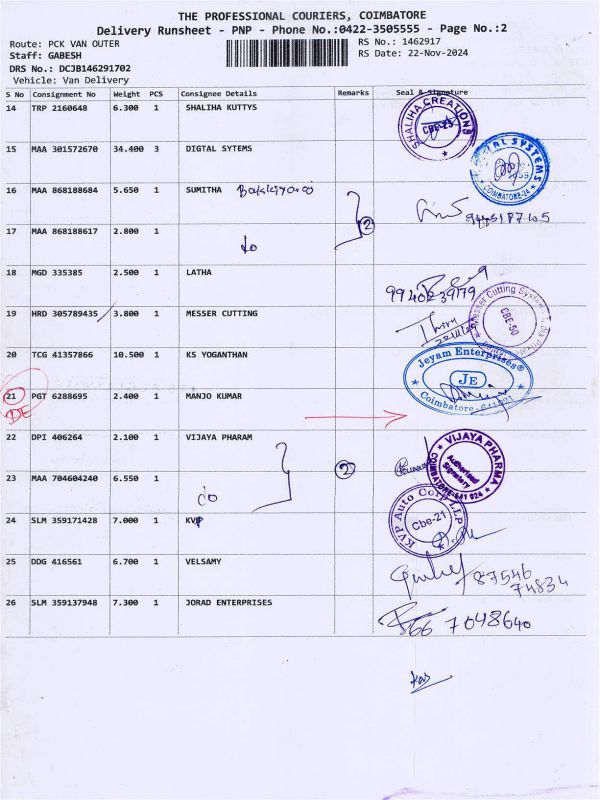 THE PROFESSIONAL COURIERS, COIMBATORE
Delivery Runsheet - PNP - Phone No.:0422-3505555 - Page No.:2
Route: PCK VAN OUTER
RS No.: 1462917
Staff: GABESH
RS Date: 22-Nov-2024
DRS No.: DCJB146291702
Vehicle: Van Delivery
S No Consignment No Weight PCS Consignee Details Remarks Seal & Signature
14 TRP 2160648 6.300 1 SHALIHA KUTTYS
SHALIHA CREATIONS CBE-23
15 MAA 301572670 34.400 3 DIGTAL SYTEMS
DIGITAL SYSTEMS COIMBATORE-24
16 MAA 868188684 5.650 1 SUMITHA
2
17 MAA 868188617 2.800 1
do
18 MGD 335385 2.500 1 LATHA
19 HRD 305789435 3.800 1 MESSER CUTTING
Messer Cutting Systems India Private Limited CBE-50
20 TCG 41357866 10.500 1 KS YOGANTHAN
Jeyam Enterprises®
JE
Coimbatore-641 021
21 PGT 6288695 2.400 1 MANJO KUMAR
22 DPI 406264 2.100 1 VIJAYA PHARAM
VIJAYA PHARMA Authorised Signatory COIMBATORE-641 024
2
23 MAA 704604240 6.550 1
24 SLM 359171428 7.000 1 KVP
KVP Auto Corp LLP Cbe-21
25 DDG 416561 6.700 1 VELSAMY
87546
74834
26 SLM 359137948 7.300 1 JORAD ENTERPRISES
7048640